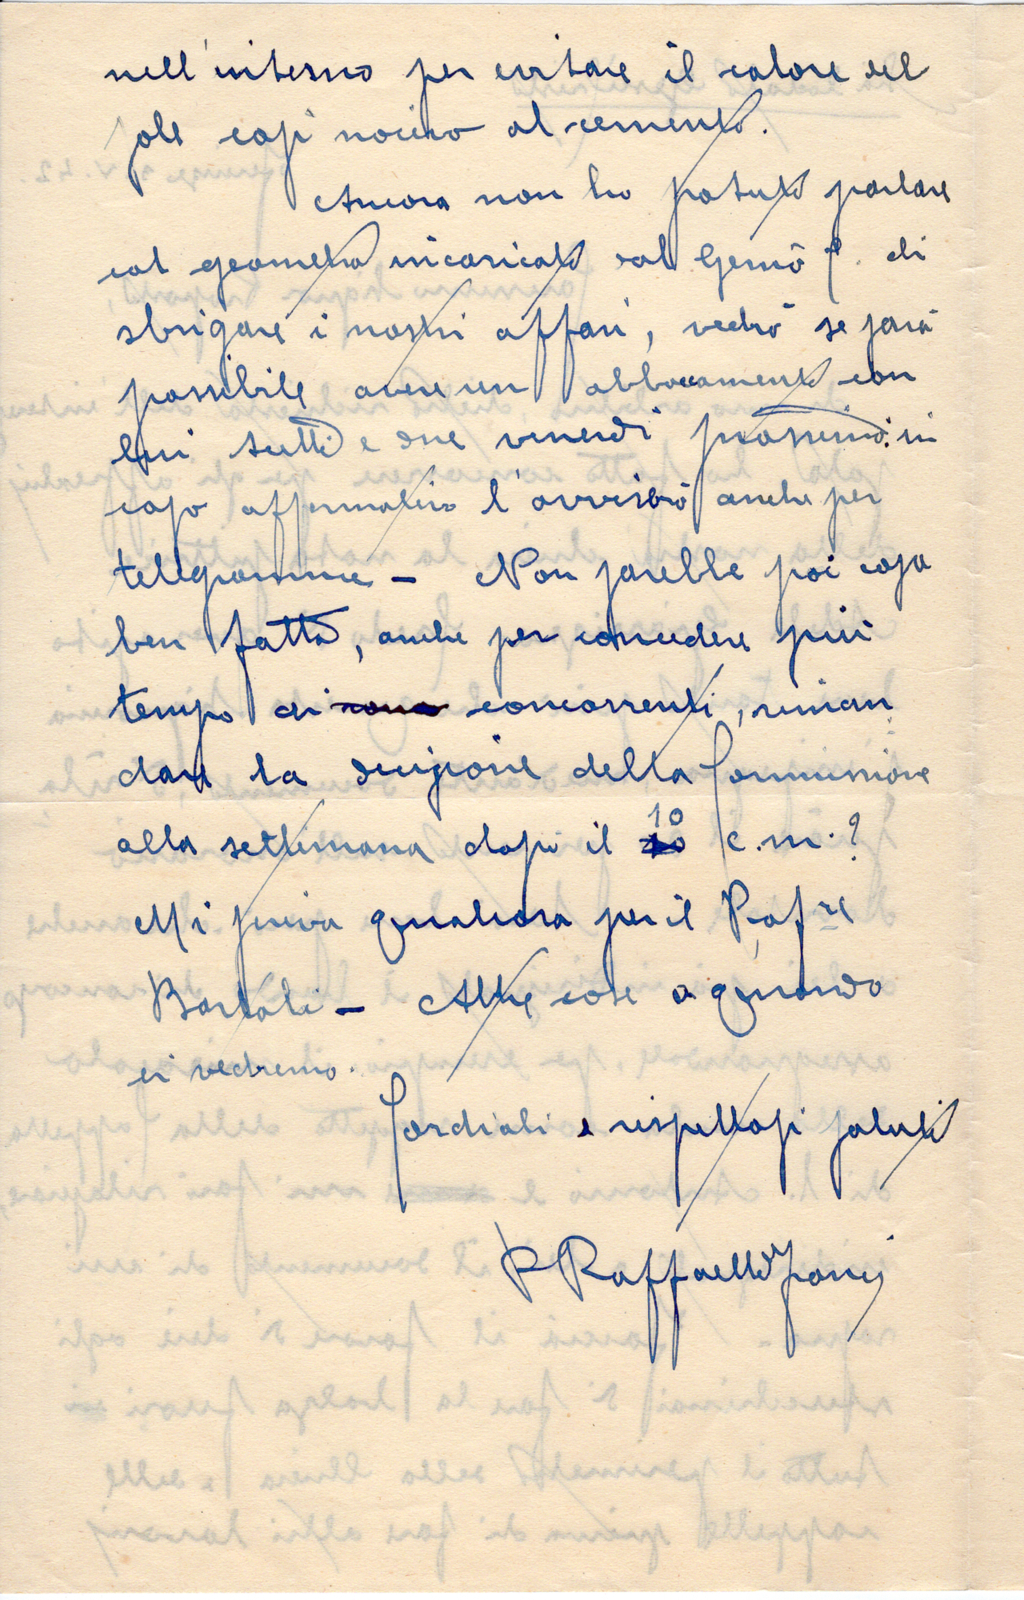 nell'interno per evitare il calore del
sole così nocivo al cemento.
Ancora non ho potuto parlare
col geometra incaricato dal Genio C. di
sbrigare i nostri affari, vedrò se sarà
possibile avere un abboccamento con
lui tutti e due venerdì prossimo: in
caso affermativo l'avviserò anche per
telegramma – Non sarebbe poi cosa
ben fatta, anche per concedere più
tempo ai concorrenti, riman
dare la decisione della Commissione
alla settimana dopo il 10 c.m.?
Mi scriva qualcosa per il Prof.re
Bartoli – Altre cose a quando
ci vedremo.
Cordiali e rispettosi saluti
P Raffaello